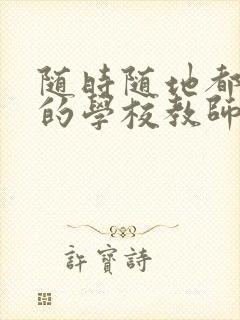 随時随地都
的學校教師
許寶詩